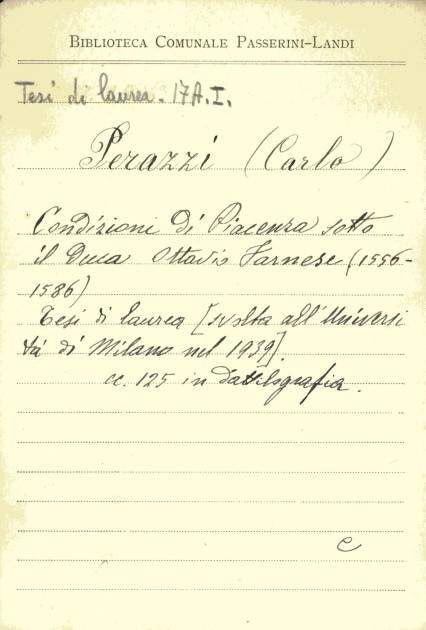 BIBLIOTECA COMUNALE PASSERINI-LANDI
Tesi di laurea. 17A.I.
Perazzi (Carlo)
Condizioni di Piacenza sotto
il Duca Ottavio Farnese (1556-
1586)
Tesi di laurea [svolta all'Universi
tà di Milano nel 1939].
cc. 125 in dattilografia.
c